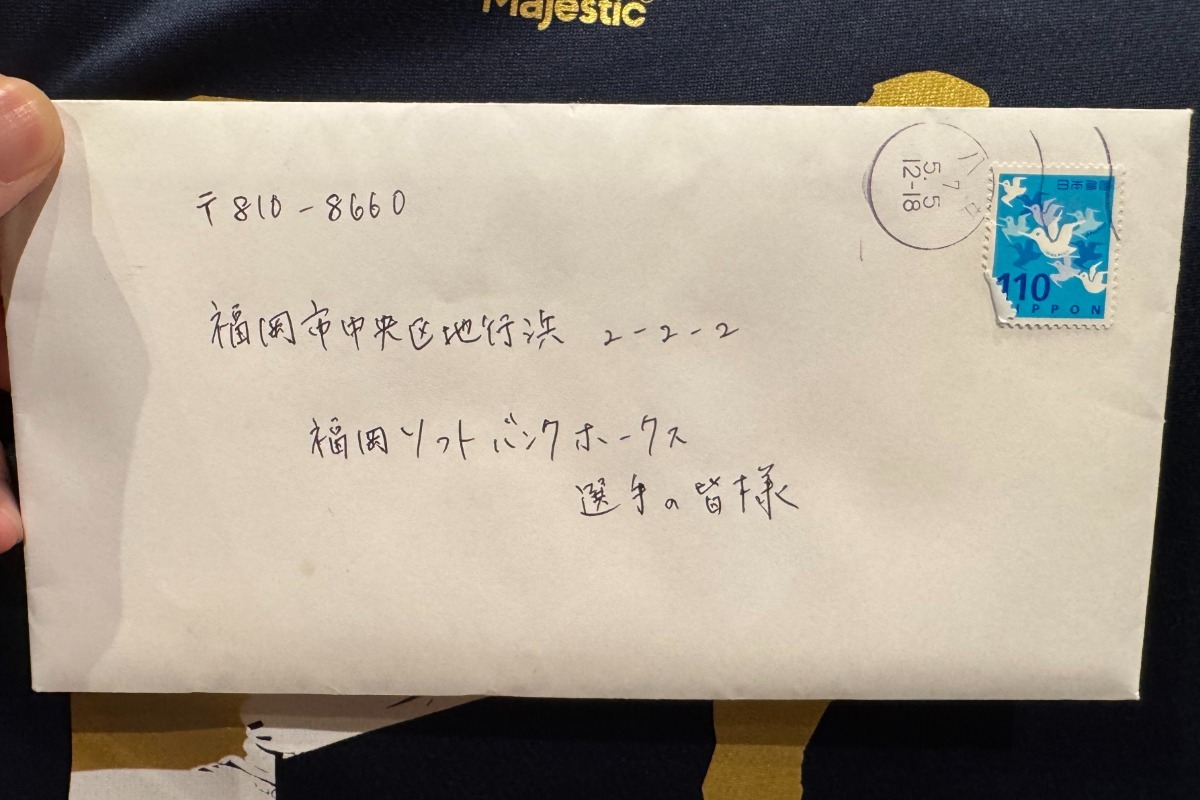 Majestic
〒810-8660
福岡市中央区地行浜 2-2-2
福岡ソフトバンクホークス
選手の皆様
7.5
5.
12-18
日本郵便
110
NIPPON